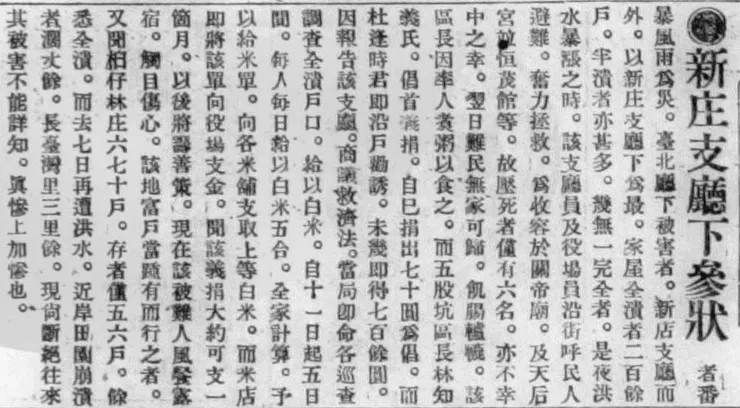 新庄支廳下參狀
者番
暴風雨爲災。臺北廳下被害者。新店支廳而
外。以新庄支廳下爲最。家屋全潰者二百餘
戶。半潰者亦甚多。幾無一完全者。是夜洪
水暴漲之時。該支廳員及役場員沿街呼民人
避難。奮力拯救。爲收容於關帝廟。及天后
宮並恒茂館等。故壓死者僅有六名。亦不幸
中之幸。翌日難民無家可歸。飢腸轆轆。該
區長因率人煮粥以食之。而五股坑區長林知
義氏。倡首義捐。自己捐出七十圓爲倡。而
杜逢時君即沿戶勸誘。未幾即得七百餘圓。
因報告該支廳。商議救濟法。當局卽命各巡查
調查全潰戶口。給以白米。自十一日起五日
間。每人每日給以白米五合。全家計算。予
以給米單。向各米舖支取上等白米。而米店
即將該單向役場支金。聞該義捐大約可支一
箇月。以後將籌善策。現在該被難人風餐露
宿。觸目傷心。該地富戶當踵有而行之者。
又聞柏仔林庄六七十戶。存者僅五六戶。餘
悉全潰。而去七日再遭洪水。近岸田園崩潰
者濶丈餘。長臺灣里三里餘。現尙斷絕往來
其被害不能詳知。眞慘上加慘也。